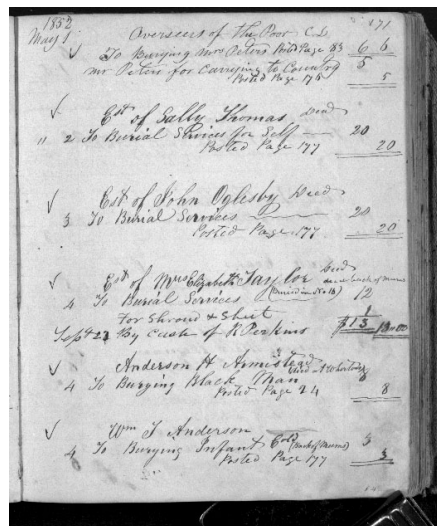 1852
171
May 1
Overseers of the Poor C.D
To Burying Mrs Peters Posted Page 83 6 6
Mr Peters for Carrying to Country 5
Posted Page 175 5
Est of Sally Thomas Deed
" 2 To Burial Services for Self 20
Posted Page 177 20
Est of John Oglesby Deed
3 To Burial Services 20
Posted Page 177 20
Est of Mrs Elizabeth Taylor Deed
4 To Burial Services 12
For Shroud & Sheet 1
Sept 27 By Cash of R Perkins $13 13.00
Anderson H Armistead
4 To Burying Black Man 8
Posted Page 24 8
Wm J Anderson
4 To Burying Infant Cold 3
Posted Page 177 3